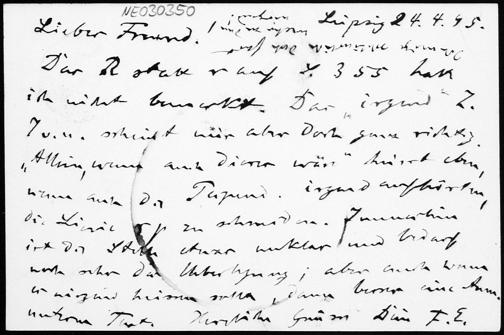 NE030350
Leipzig 24.4.95.
Lieber Freund.
Das R statt r auf S. 355 hatt
ich nicht bemerkt. Das „irgend" Z.
7 v. u. scheint mir aber doch ganz richtig.
„Allein, wenn auch dieses wäre" heisst eben,
wenn auch die irgend aufhörten,
die Linie zu schneiden. Immerhin
ist die Stelle etwas unklar und bedarf
wohl sehr der Überlegung; aber auch wenn
es nirgend heissen sollte, dann besser eine Anm.
unterm Text. Herzliche Grüsse Dein F. E.